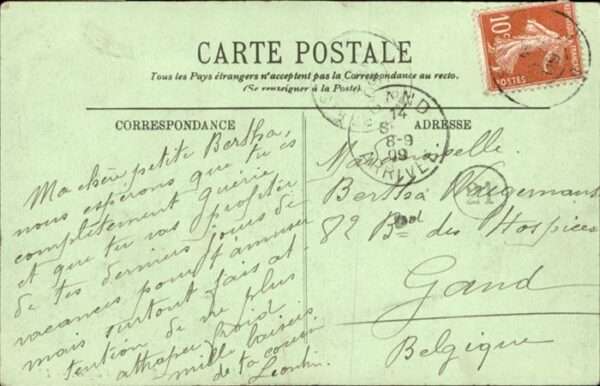 10c
POSTES
CARTE POSTALE
Tous les Pays étrangers n'acceptent pas la Correspondance au recto.
(Se renseigner à la Poste).
GAND
14
8-9
09
ARRIVÉE
CORRESPONDANCE
ADRESSE
Ma chère petite Bertha,
nous espérons que tu es
complètement guérie
et que tu vas profiter
de tes derniers jours de
vacances pour t'amuser
mais surtout fais at-
tention de ne plus
attraper froid
mille baisers
de ta cousine
Mademoiselle
Bertha
82 Bard des Hospices
Gand
Belgique
21